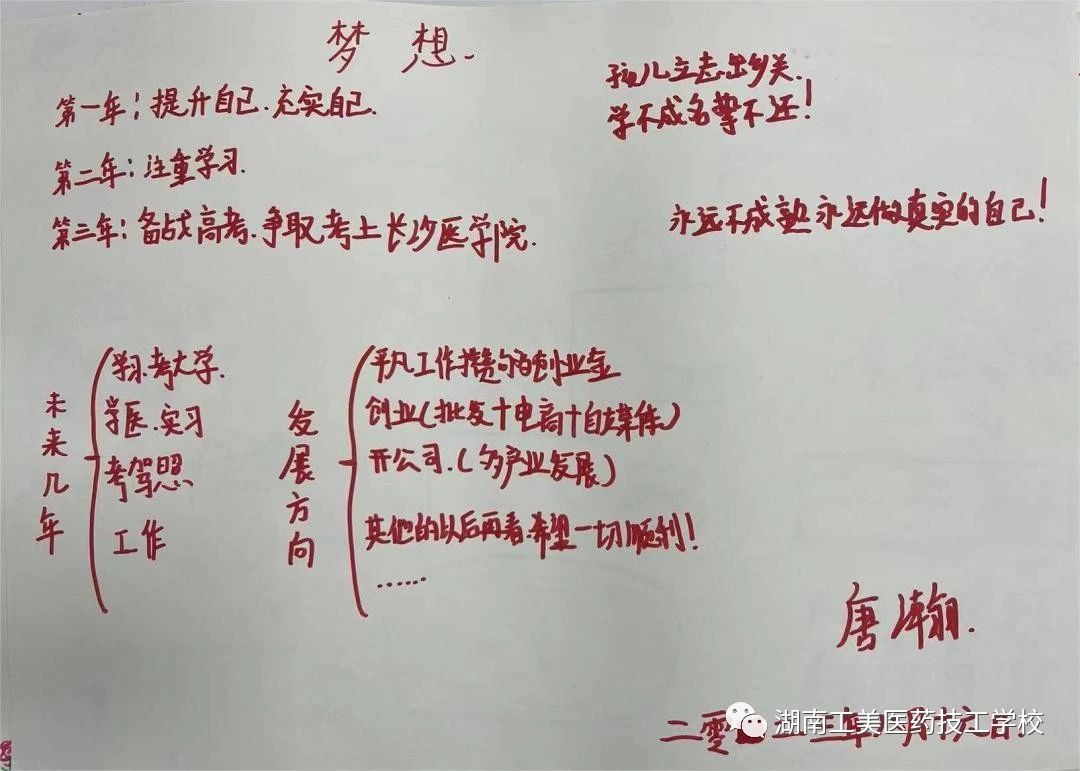 梦 想.
第一年:提升自己.充实自己.
第二年:注重学习.
第三年:备战高考.争取考上长沙医学院.
孩儿立志出乡关.
学不成名誓不还!
永远不成熟永远做真实的自己!
未来几年
学习.考大学.
学医.实习
考驾照
工作
发展方向
平凡工作攒够创业金
创业(批发+电商+自媒体)
开公司.(多产业发展)
其他的以后再看.希望一切顺利!
……
唐瀚.
二零二三年 月十六日
湖南工美医药技工学校